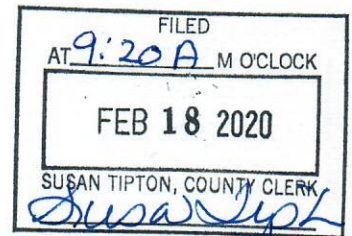 FILED
AT 9:20 A M O'CLOCK
FEB 18 2020
SUSAN TIPTON, COUNTY CLERK
Susan Tipton